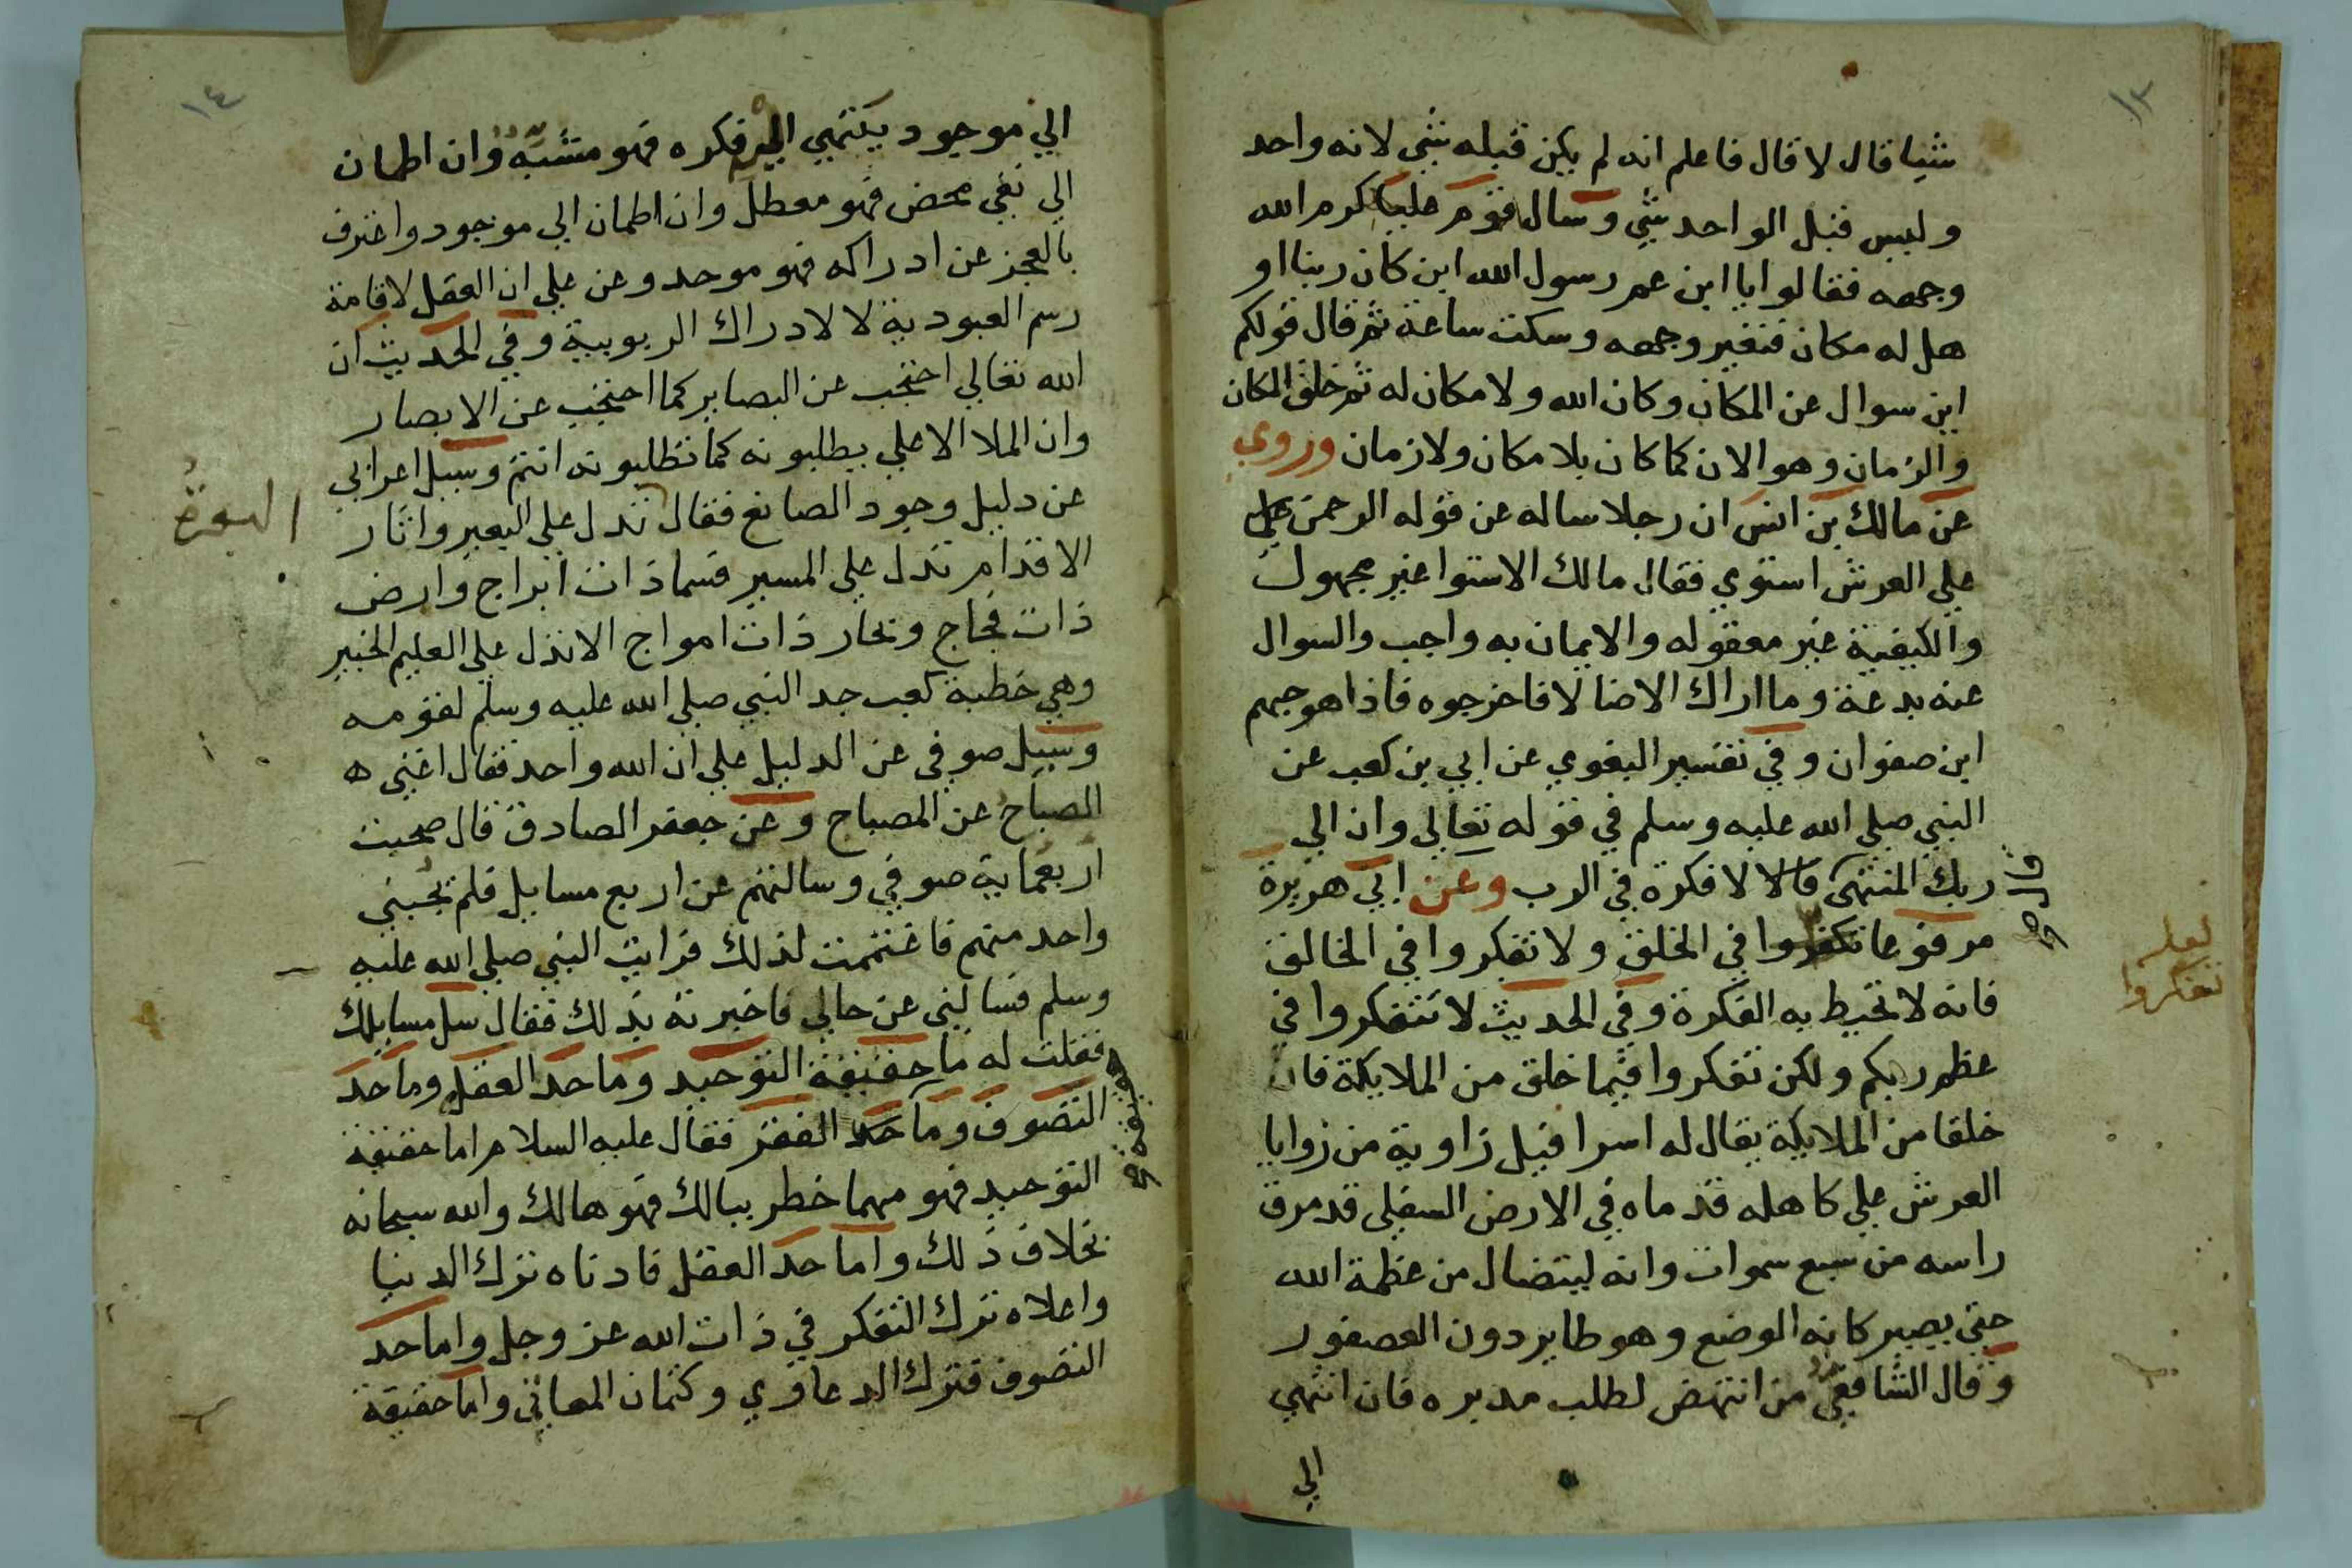 ١٣
شيا قال لا قال فاعلم انه لم يكن قبله شي لانه واحد
وليس قبل الواحد شي وسال قوم عليا كرم الله
وجهه فقالوا يا ابن عم رسول الله اين كان ربنا او
هل له مكان فتغير وجهه وسكت ساعة ثم قال قولكم
اين سوال عن المكان وكان الله ولا مكان له ثم خلق المكان
والزمان وهو الان كما كان بلا مكان ولا زمان وروي
عن مالك بن انس ان رجلا ساله عن قوله الرحمن علي
علي العرش استوي فقال مالك الاستوا غير مجهول
والكيفية غير معقوله والايمان به واجب والسوال
عنه بدعة وما اراك الا ضالا فاخرجوه فاذا هو جهم
ابن صفوان وفي تفسير البغوي عن ابي بن كعب عن
النبي صلي الله عليه وسلم في قوله تعالي وان الي
ربك المنتهى قال لا فكرة في الرب وعن ابي هريرة
مرفوعا تفكروا في الخلق ولا تفكروا في الخالق
لعله
تفكروا
فانه لا تحيط به الفكرة وفي الحديث لا تتفكروا في
عظم ربكم ولكن تفكروا فيما خلق من الملايكة فان
خلقا من الملايكة يقال له اسرافيل زاوية من زوايا
العرش علي كاهله قدماه في الارض السفلي قد مرق
راسه من سبع سموات وانه ليتضال من عظمة الله
حتي يصير كانه الوضع وهو طاير دون العصفور
وقال الشافعي من انتهض لطلب مدبره فان انتهي
الي
١٤
الي موجود ينتهي اليه فكره فهو مشبه وان اطمان
الي نفي محض فهو معطل وان اطمان الي موجود واعترف
بالعجز عن ادراكه فهو موحد وعن علي ان العقل لاقامة
رسم العبودية لا لادراك الربوبية وفي الحديث ان
الله تعالي احتجب عن البصاير كما احتجب عن الابصار
وان الملا الاعلي يطلبونه كما تطلبونه انتم وسيل اعرابي
عن دليل وجود الصانع فقال تدل علي البعير واثار
البعرة
الاقدام تدل علي المسير فسما ذات ابراج وارض
ذات فجاج وبحار ذات امواج الا تدل علي العليم الخبير
وهي خطبة كعب جد النبي صلي الله عليه وسلم لقومه
وسيل صوفي عن الدليل علي ان الله واحد فقال اغني ه
الصباح عن المصباح وعن جعفر الصادق قال صحبت
اربعماية صوفي وسالتهم عن اربع مسايل فلم يجبني
واحد منهم فاغتممت لذلك فرايت النبي صلي الله عليه
وسلم فسالني عن حالي فاخبرته بذلك فقال سل مسايلك
فقلت له ما حقيقة التوحيد وما حد العقل وما حد
التصوف وما حد الفقر فقال عليه السلام اما حقيقة
التوحيد فهو مهما خطر ببالك فهو هالك والله سبحانه
بخلاف ذلك واما حد العقل فادناه ترك الدنيا
واعلاه ترك التفكر في ذات الله عز وجل واما حد
التصوف فترك الدعاوي وكتمان المعاني واما حقيقة